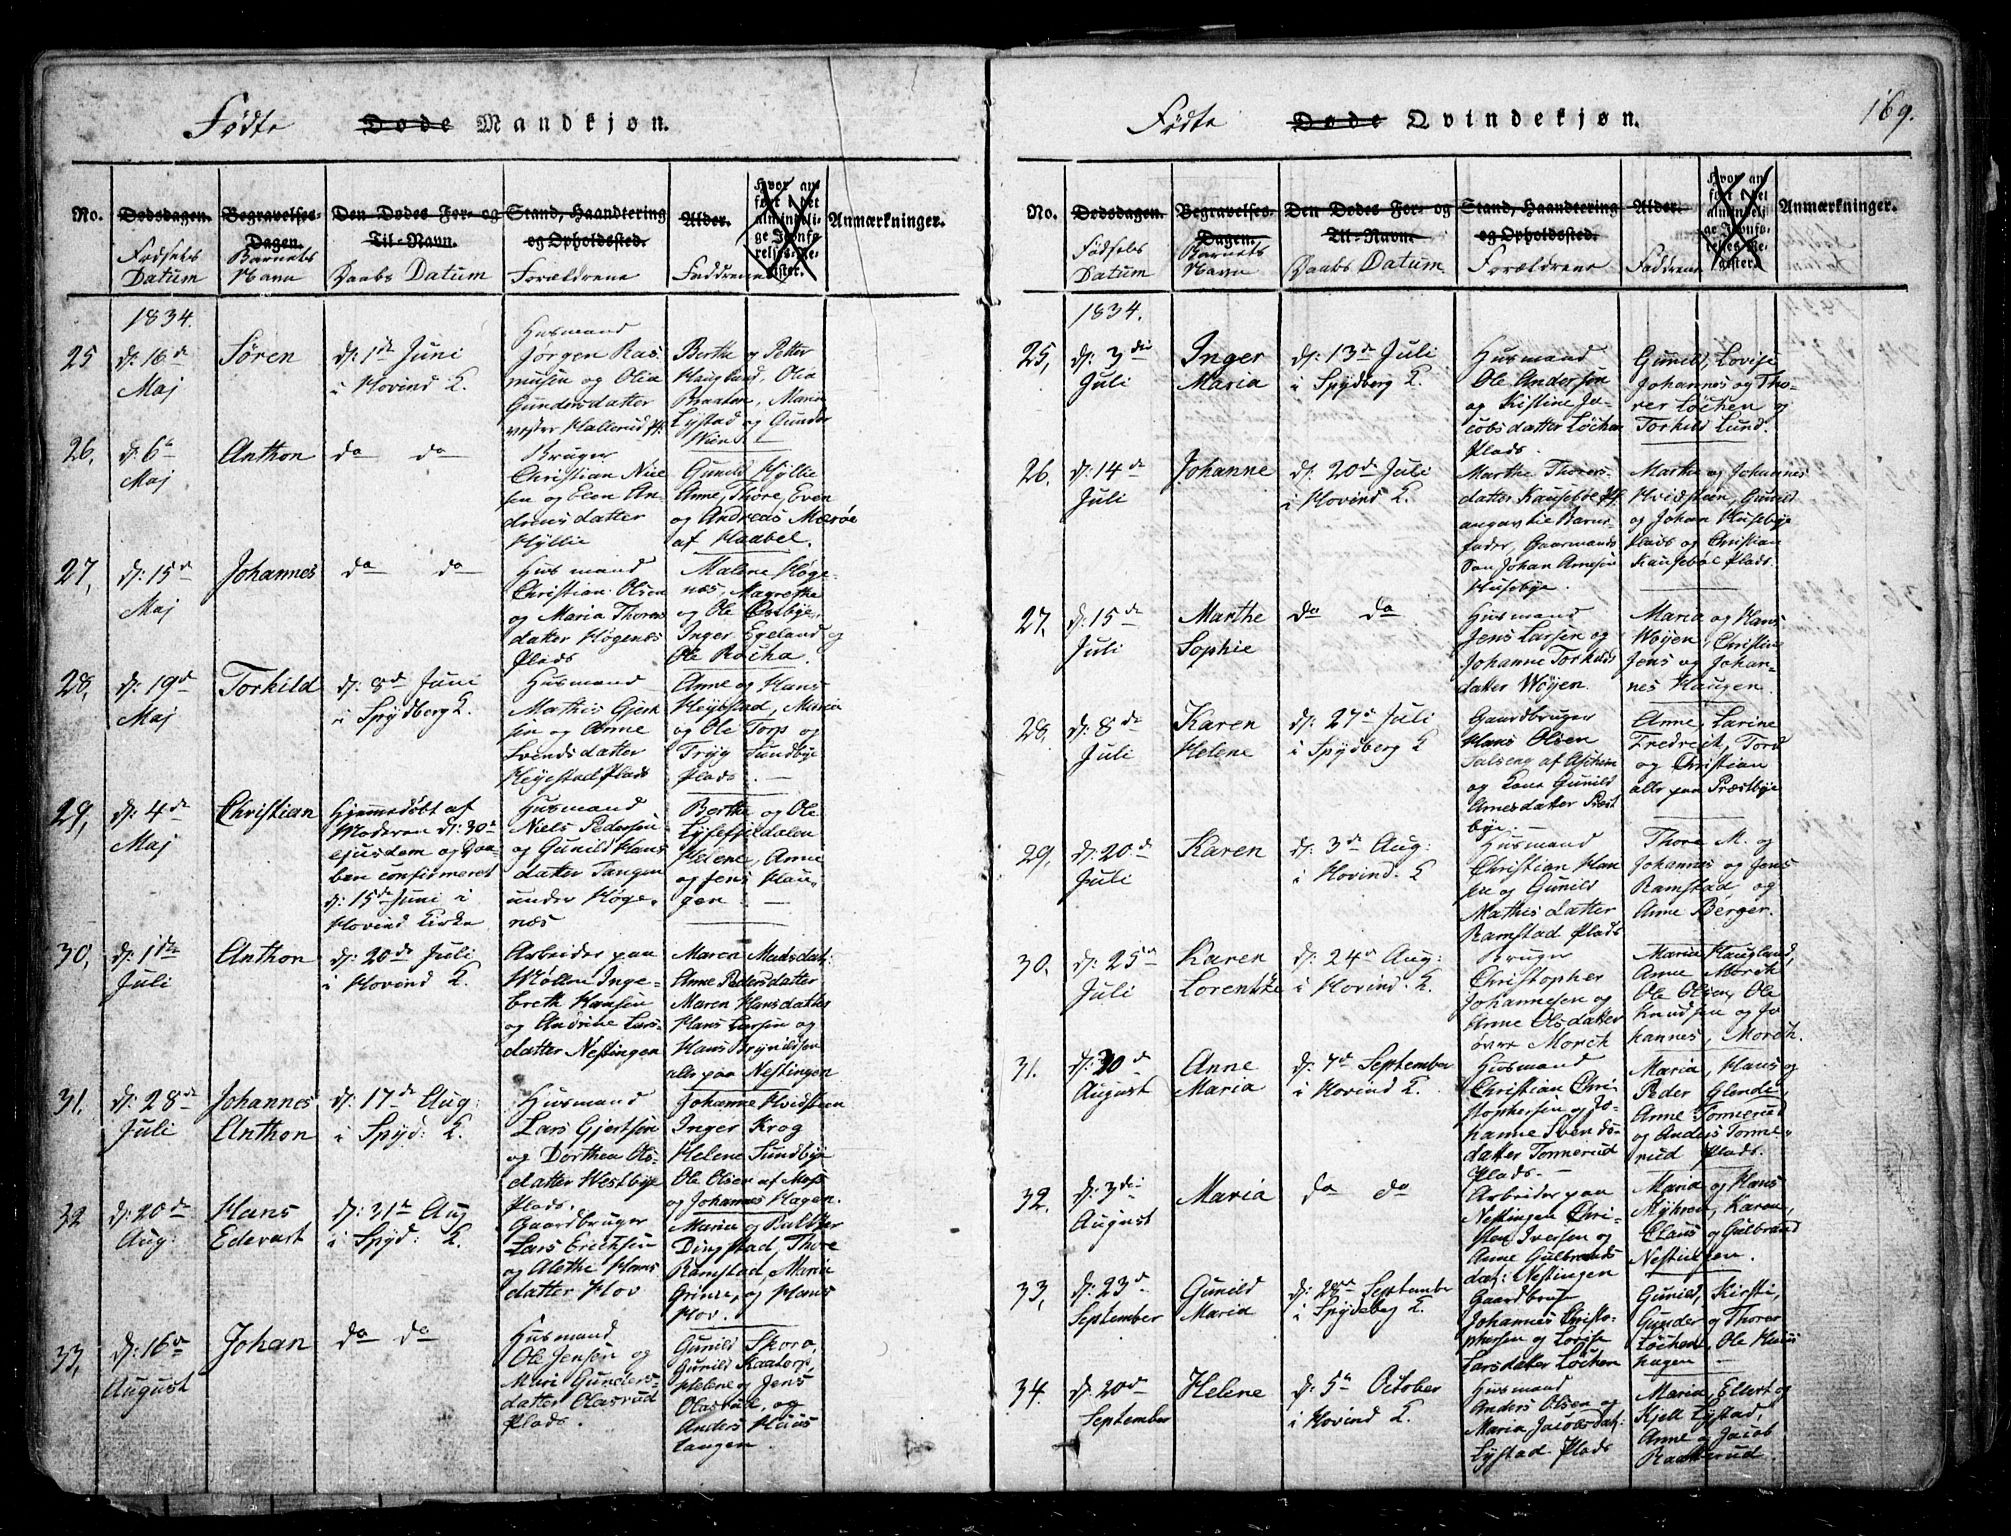 Fødte Døde Mandkjøn.
No.
Dødsdagen.
Fødsels
Datum
Begravelses-
Dagen.
Barnets
Navn
Den Dødes For- og
Til-Navn.
Daabs Datum
Stand, Haandtering
og Opholdssted.
Forældrene
Alder.
Faddrene
Hvor an-
ført i det
almindeli-
ge Jevnfø-
relses-Re-
gister.
Anmærkninger.
1834.
25
d: 16de
Maj
Søren
d: 1ste Juni
i Hovind K.
Husmand
Jørgen Ras-
musen og Olia
Gundersdatter
vester Hallerud Pl.
Berthe og Petter
Haugland, Olia
Braaten, Maren
Lystad og Gunder
26,
d: 6te
Maj
Anthon
do do
Bruger
Christian Niel-
sen og Elen An-
drensdatter
Hyllie
Gunild Hyllie
Anne, Thore, Even
og Andreas Mærøe
af Haabel.
27,
d: 15de
Maj
Johannes
do do
Husmand
Christian Olsen
og Maria Thores
datter Høgenæs
Plads
Malene Høge-
næs, Magrethe
og Ole Østbye,
Inger Egeland og
Ole Rocha.
28,
d: 19de
Maj
Torkild
d: 8de Juni
i Spydberg K.
Husmand
Mathis Gjert-
sen og Anne
Svendsdatter
Heyestad Plads
Anne og Hans
Heyestad, Maria
og Ole Torp og
Tryg Sundbye
Plads.
29,
d: 4de
Maj
Christian
Hjemmedøbt af
Moderen d: 30te
ejusdem og Daa-
ben confirmeret
d: 15de Juni i
Hovind Kirke
Husmand
Niels Pedersen
og Gunild Hans
datter Tangen
under Høge-
næs
Berthe og Ole
Lysefjeldalen
Helene, Anne
og Jens Hau-
gen
30,
d: 1ste
Juli
Anthon
d: 20de Juli
i Hovind K.
Arbeider paa
Møllen Inge-
breth Hansen
og Andrine Lars-
datter Nestingen
Maren Madsdat:
Anne Pedersdatter
Maren Hansdatter
Hans Larsen og
Hans Brynildsen
alle paa Nestingen
31.
d: 28de
Juli
Johannes
Anthon
d: 17de Aug:
i Spyd: K.
Husmand
Lars Gjertsen
og Dorthea Ols-
datter Westbye
Plads.
Johanne Hvidsteen
Inger Krog
Helene Sundbye
Ole Olsen af Moss
og Johannes Hagen.
32
d: 20de
Aug:
Hans
Edevart
d: 31te Aug
i Spyd: K.
Gaardbruger
Lars Erichsen
og Alethe Hans
datter Hov
Maria og Balther
Dingstad, Thore
Ramstad, Maria
Grime, og Hans
Hov.
33,
d: 16de
August
Johan
do do
Husmand
Ole Jensen og
Mari Gunders-
datter Olasrud
Plads.
Gunild Skoro,
Gunild Kaatorp,
Helene og Jens
Olasrud, og
Anders Huus
tangen.
Fødte Døde Qvindekjøn.
169.
No.
Dødsdagen.
Fødsels
Datum
Begravelses-
Dagen.
Barnets
Navn
Den Dødes For- og
Til-Navn.
Daabs Datum
Stand, Haandtering
og Opholdssted.
Forældrene
Alder.
Faddrene
Hvor an-
ført i det
almindeli-
ge Jevnfø-
relses-Re-
gister.
Anmærkninger.
1834.
25,
d: 3die
Juli
Inger
Maria
d: 13de Juli
i Spydberg K.
Husmand
Ole Andersen
og Kistine Ja-
cobsdatter Løchen
Plads.
Gunild, Lovise
Johannes og Tho-
rer Løchen og
Torkild Lund.
26,
d: 14de
Juli
Johanne
d: 20de Juli
i Hovind K.
Marthe Thores-
datter Kausebøe Pl.
angavtlie Barne-
fader, Gaarmands
Søn Johan Arnesen
Husebye.
Marthe og Johannes
Hvidsteen, Gunild
og Johan Husebye
Plads og Christian
Kausebøe Plads.
27,
d: 15de
Juli
Marthe
Sophie
do do
Husmand
Jens Larsen og
Johanne Torkilds
datter Wøyen.
Maria og Hans
Wøyen, Christine
Jens og Johan-
nes Haugen.
28,
d: 8de
Juli
Karen
Helene
d: 27de Juli
i Spydberg K
Gaardbruger
Hans Olsen
Salseng af Aschim
og Kone Gunild
Arnesdatter Præst
bye.
Anne, Larine
Fredreit, Tord
og Christian
alle paa Præstbye
29,
d: 20de
Juli
Karen
d: 3de Aug:
i Hovind. K
Husmand
Christian Han-
sen og Gunild
Mathisdatter
Ramstad Plads
Thore M. og
Johannes og Jens
Ramstad og
Anne Berger.
30.
d: 25de
Juli
Karen
Lorentze
d: 24de Aug:
i Hovind. K.
Bruger
Christopher
Johannesen og
Anne Olsdatter
øvre Morch
Maria Haugland,
Anne Morch
Ole Olsen, Ole
Knudsen og Jo
hannes, Morch.
31.
d: 30de
August
Anne
Maria
d: 7de September
i Hovind K.
Husmand
Christian Chri-
stophersen og Jo-
hanne Svends-
datter Tonnerud
Plads.
Maria, Hans og
Peder Glende,
Anne Tonnerud
og Anders Tonne-
rud Plads.
32,
d: 3die
August
Maria
do do
Arbeider paa
Nestingen Chri-
sten Iversen og
Anne Gulbrands
dat: Nestingen
Maria og Hans
Myhren, Karen,
Claus og Gulbrand
Nestingen.
33,
d: 23de
September
Gunild
Maria
d: 28de September
i Spydeberg K.
Gaardbrug
Johannes Christo-
phersen og Lovise
Larsdatter Løchen
Gunild, Kirsti,
Gunder og Thorer
Løchen, Ole Huus
hagen
34.
d: 20de
September
Helene
d: 5te October
i Hovind K.
Husmand
Anders Olsen og
Maria Jacobsdat:
Lystad Plads
Maria, Ellert og
Kjell Lystad,
Anne og Jacob
Raakerud.